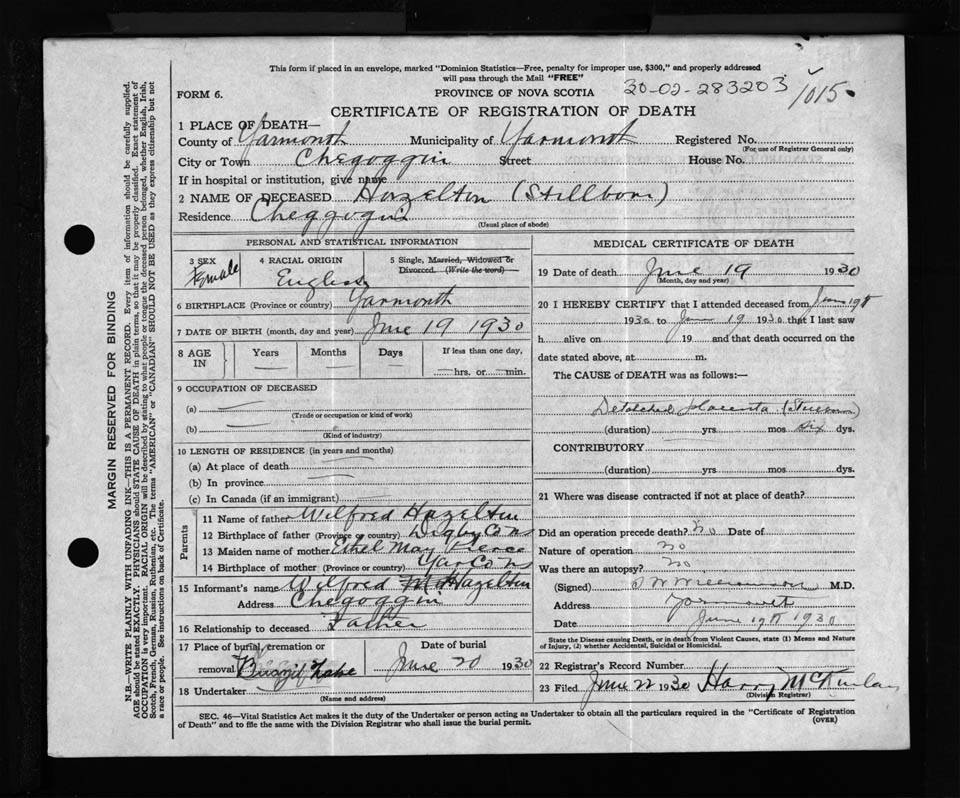 This form if placed in an envelope, marked "Dominion Statistics—Free, penalty for improper use, $300," and properly addressed
will pass through the Mail "FREE"
FORM 6.
PROVINCE OF NOVA SCOTIA
30-02-283203
1015
CERTIFICATE OF REGISTRATION OF DEATH
1 PLACE OF DEATH—
County of Yarmouth Municipality of Yarmouth Registered No.
(For use of Registrar General only)
City or Town Chegoggin Street House No.
If in hospital or institution, give name
2 NAME OF DECEASED Hazelton (Stillborn)
Residence Cheggogin
(Usual place of abode)
PERSONAL AND STATISTICAL INFORMATION
3 SEX Female
4 RACIAL ORIGIN English
5 Single, Married, Widowed or
Divorced. (Write the word)
6 BIRTHPLACE (Province or county) Yarmouth
7 DATE OF BIRTH (month, day and year) June 19 1930
8 AGE IN Years Months Days If less than one day,
hrs. or min.
9 OCCUPATION OF DECEASED
(a)
(Trade or occupation or kind of work)
(b)
(Kind of industry)
10 LENGTH OF RESIDENCE (in years and months)
(a) At place of death
(b) In province
(c) In Canada (if an immigrant)
Parents
11 Name of father Wilfred Hazelton
12 Birthplace of father (Province or country) Digby Co NS
13 Maiden name of mother Ethel May Pierce
14 Birthplace of mother (Province or country) Yar Co NS
15 Informant's name Wilfred M Hazelton
Address Chegoggin
16 Relationship to deceased Father
17 Place of burial, cremation or
removal
Date of burial
June 20 1930
18 Undertaker
(Name and address)
MEDICAL CERTIFICATE OF DEATH
19 Date of death June 19 1930
(Month, day and year)
20 I HEREBY CERTIFY that I attended deceased from June 19th
1930 to June 19 1930 that I last saw
h alive on 19 and that death occurred on the
date stated above, at m.
The CAUSE of DEATH was as follows:—
Detached placenta (Stillborn)
(duration) yrs. mos six dys.
CONTRIBUTORY
(duration) yrs. mos. dys.
21 Where was disease contracted if not at place of death?
Did an operation precede death? no Date of
Nature of operation no
Was there an autopsy? no
(Signed) Williamson M.D.
Address Yarmouth
Date June 19th 1930
State the Disease causing Death, or in death from Violent Causes, state (1) Means and Nature
of Injury, (2) whether Accidental, Suicidal or Homicidal.
22 Registrar's Record Number
23 Filed June 22 1930 Harry McKinlay
(Division Registrar)
SEC. 46—Vital Statistics Act makes it the duty of the Undertaker or person acting as Undertaker to obtain all the particulars required in the "Certificate of Registration
of Death" and to file the same with the Division Registrar who shall issue the burial permit.
(OVER)
MARGIN RESERVED FOR BINDING
N.B.—WRITE PLAINLY WITH UNFADING INK—THIS IS A PERMANENT RECORD. Every item of information should be carefully supplied.
AGE should be stated EXACTLY. PHYSICIANS should STATE CAUSE OF DEATH in plain terms, so that it may be properly classified. Exact statement of
OCCUPATION is very important. RACIAL ORIGIN will be described by stating to what people or tongue the deceased person belonged, whether English, Irish,
Scotch, French, German, Russian, Ruthenian, etc. The terms "AMERICAN" or "CANADIAN" SHOULD NOT BE USED as they express citizenship but not
a race or people. See instructions on back of Certificate.